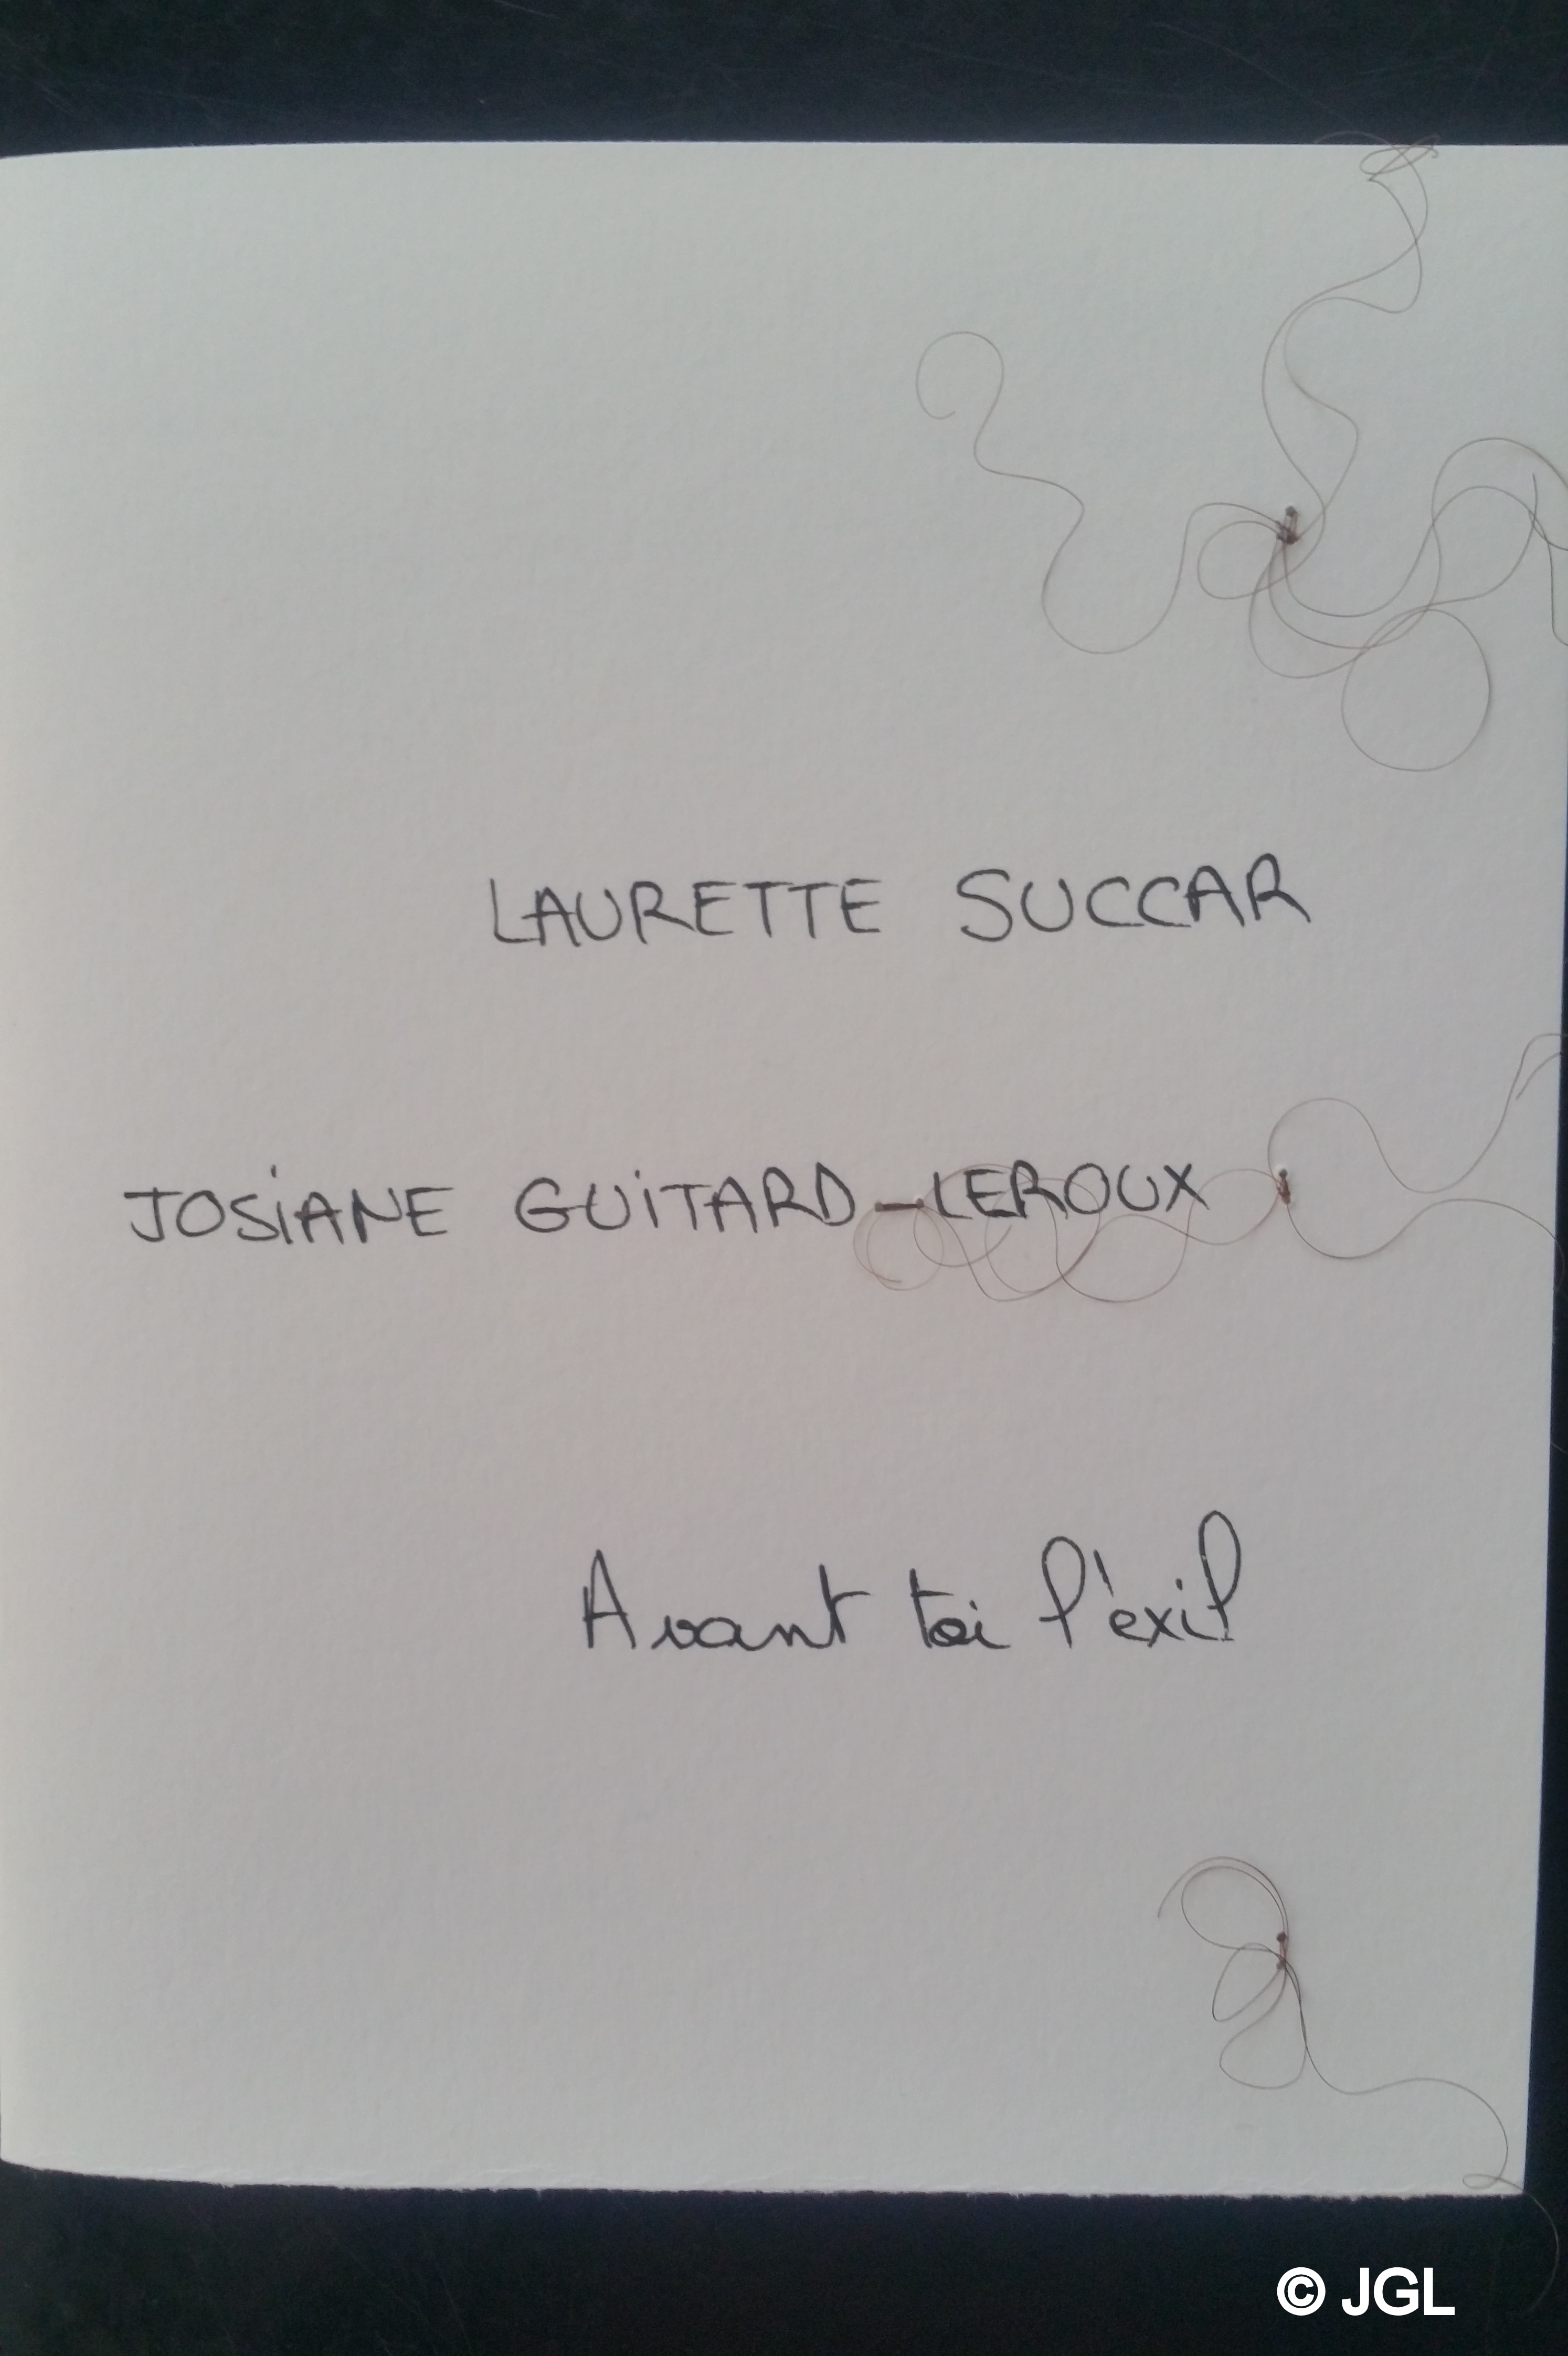 LAURETTE SUCCAR
JOSiANE GUiTARD-LEROUX
Avant toi l'exil
© JGL